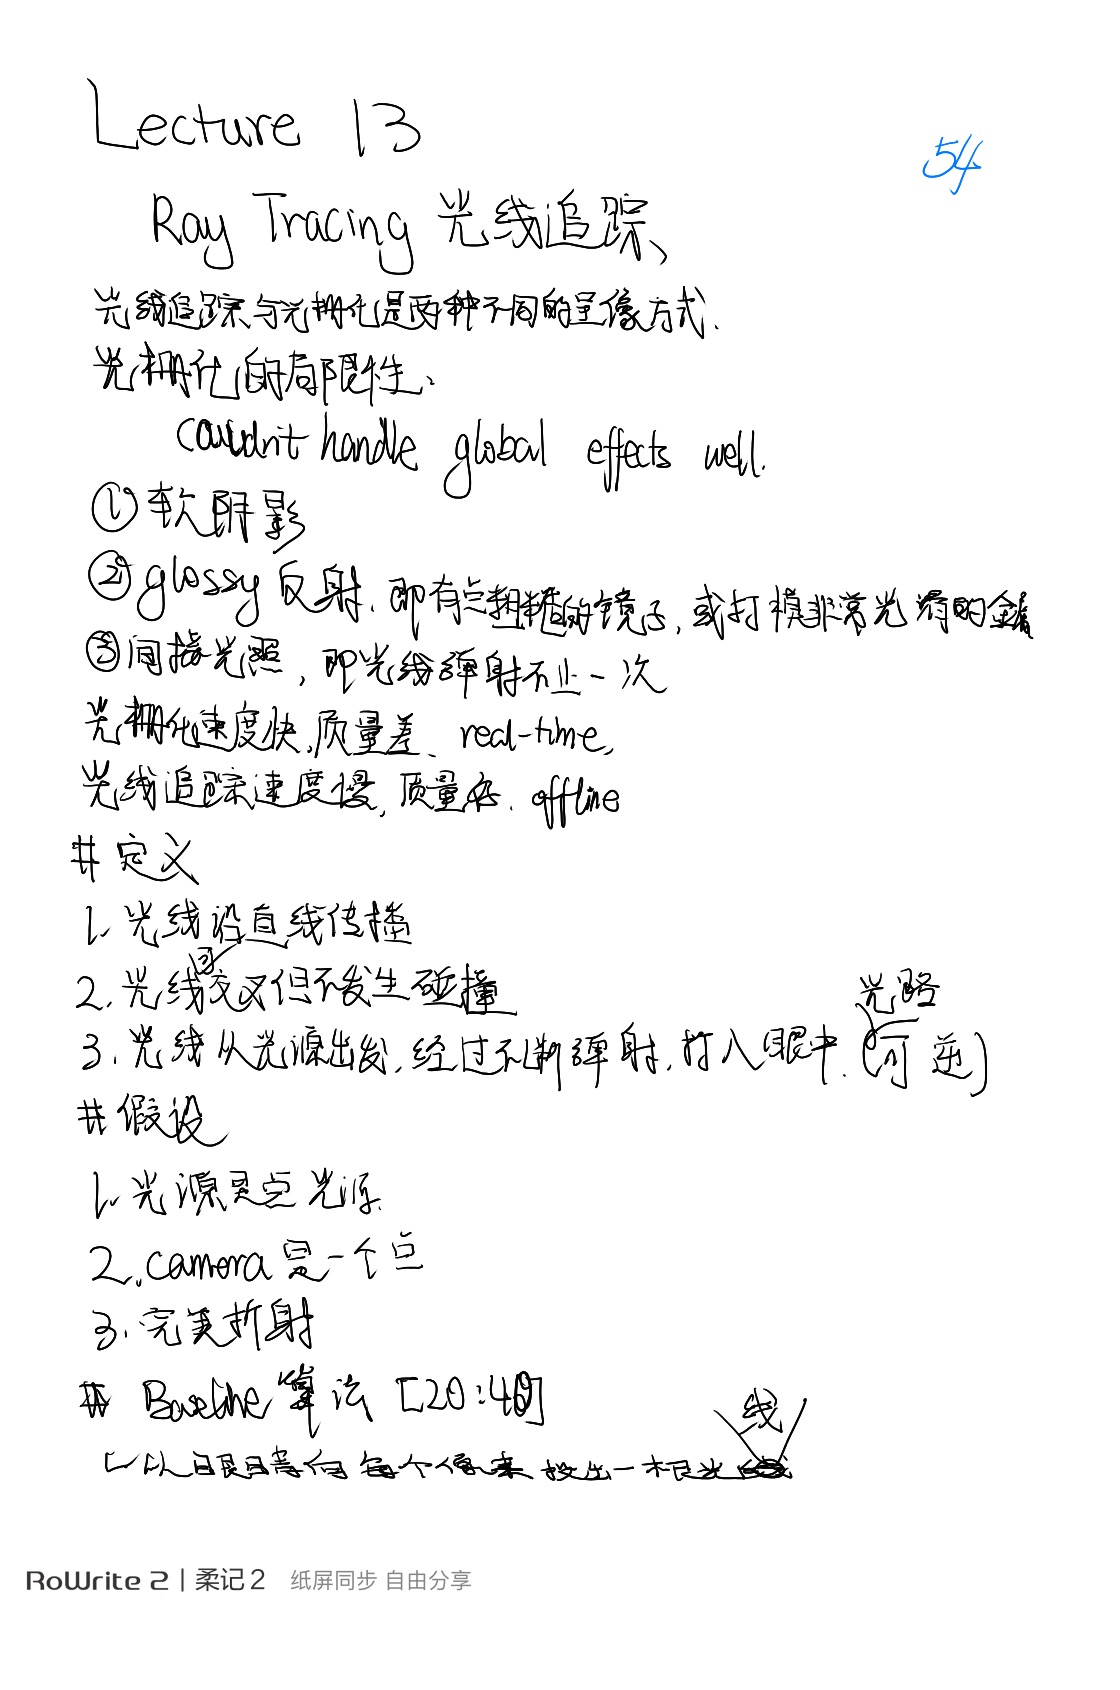 Lecture 13
54
Ray Tracing 光线追踪、
光线追踪与光栅化是两种不同的呈像方式.
光栅化的局限性:
Couldn't handle global effects well.
①软阴影
②glossy 反射. 即有点粗糙的镜子, 或打模非常光滑的金属
③间接光照, 即光线弹射不止一次
光栅化速度快, 质量差、real-time,
光线追踪速度慢, 质量好. offline
# 定义
1. 光线沿直线传播
2. 光线可交叉但不发生碰撞
3. 光线从光源出发, 经过不断弹射, 打入眼中. (光路可逆)
# 假设
1. 光源是点光源.
2. camera 是一个点
3. 完美折射
# Baseline 算法 [20:40]
1. 以眼睛向每个像素投出一根光线
RoWrite 2 | 柔记 2 纸屏同步 自由分享